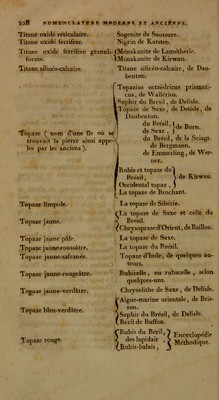 228 NOMENCLATURE MODERNE ET ANCIENNE.
Titane oxidé réticulaire. Sagenite de Saussure.
Titane oxidé ferrifère. Nigrin de Karsten.
Titane oxidé ferrifère granuliforme. Ménakanite de Lamétherie.
Ménakanite de Kirwan.
Titane siliceo-calcaire. Titane siliceo-calcaire, de Daubenton.
Topaze ( nom d'une île où se trouvait la pierre ainsi appelée par les anciens ).
Topazius octaëdricus prismaticus, de Wallérius.
Saphir du Brésil, de Delisle.
Topaze de Saxe, de Delisle, de Daubenton.
du Brésil, de Saxe, } de Born.
du Brésil, de la Sciagr. de Bergmann.
de Emmerling, de Werner.
Rubis et topaze du Brésil,
Occidental topaz, } de Kirwan.
La topaze de Brochant.
Topaze limpide. La topaze de Sibérie.
Topaze jaune. La topaze de Saxe et celle du Brésil.
Chrysoprase d'Orient, de Baillon.
Topaze jaune pâle. La topaze de Saxe.
Topaze jaune-roussâtre. La topaze du Brésil.
Topaze jaune-safranée. Topaze d'Inde, de quelques auteurs.
Topaze jaune-rougeâtre. Rubicelle, ou rubacelle, selon quelques-uns.
Topaze jaune-verdâtre. Chrysolithe de Saxe, de Delisle.
Topaze bleu-verdâtre. Aigue-marine orientale, de Brisson.
Saphir du Brésil, de Delisle.
Béril de Buffon.
Topaze rouge. Rubis du Brésil, des lapidair.
Rubis-balais, } Encyclopédie Méthodique.